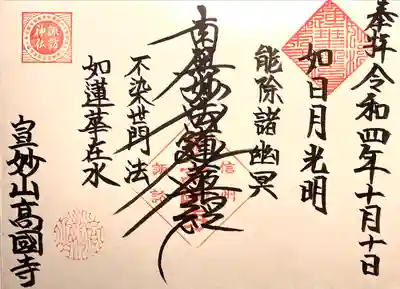 奉拝 令和四年十月十日
如日月光明
能除諸幽冥
南無妙法蓮華経
不染世間法
如蓮華在水
宣妙山高國寺
諏訪
神仏
信州
諏訪